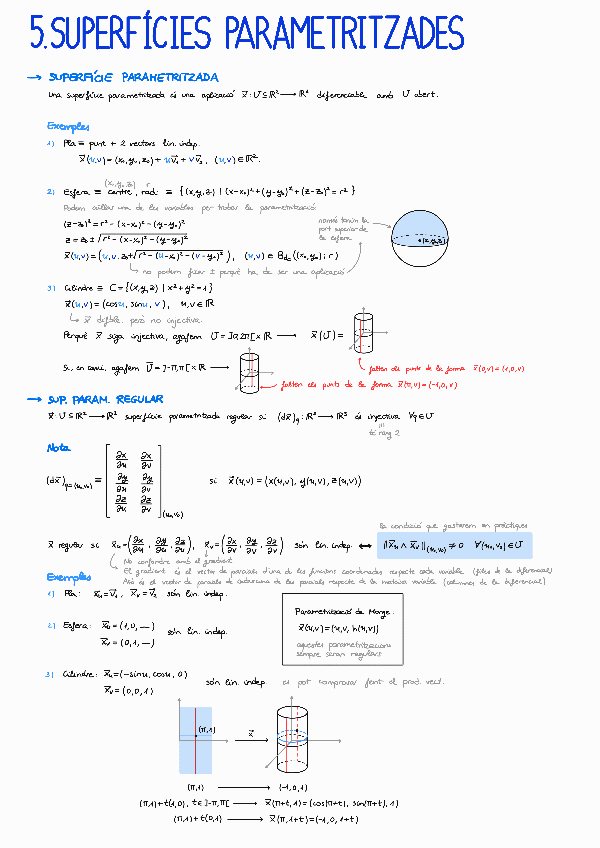 5. SUPERFÍCIES PARAMETRITZADES
→ SUPERFÍCIE PARAMETRITZADA
Una superfície parametritzada és una aplicació x⃗: U ⊆ ℝ² → ℝ³ diferenciable amb U obert.
Exemples
1) Pla ≡ punt + 2 vectors lin. indep.
x⃗(u,v) = (x₀, y₀, z₀) + u v⃗₁ + v v⃗₂, (u,v) ∈ ℝ².
(x₀,y₀,z₀) r
2) Esfera ≡ centre, radi ≡ {(x,y,z) | (x-x₀)² + (y-y₀)² + (z-z₀)² = r²}
Podem aïllar una de les variables per trobar la parametrització:
(z-z₀)² = r² - (x-x₀)² - (y-y₀)²
z = z₀ ± √(r² - (x-x₀)² - (y-y₀)²)
x⃗(u,v) = (u, v, z₀ + √(r² - (u-x₀)² - (v-y₀)²)), (u,v) ∈ B_{d₂}((x₀,y₀); r)
no podem ficar ± perquè ha de ser una aplicació
només tenim la
part superior de
la esfera
(x,y,z)
3) Cilindre ≡ C = {(x,y,z) | x² + y² = 1}
x⃗(u,v) = (cosu, sinu, v), u,v ∈ ℝ
x⃗ difble. però no injectiva.
Perquè x⃗ siga injectiva, agafem U = ]0,2π[ × ℝ → x⃗(U) =
falten els punts de la forma x⃗(0,v) = (1,0,v)
Si, en canvi, agafem U = ]-π,π[ × ℝ →
falten els punts de la forma x⃗(π,v) = (-1,0,v)
→ SUP. PARAM. REGULAR
x⃗: U ⊆ ℝ² → ℝ³ superfície parametritzada regular si (dx⃗)_q : ℝ² → ℝ³ és injectiva ∀q ∈ U
té rang 2
Nota
(dx⃗)_{q=(u₀,v₀)} = [∂x/∂u ∂x/∂v; ∂y/∂u ∂y/∂v; ∂z/∂u ∂z/∂v]_{(u₀,v₀)} si x⃗(u,v) = (x(u,v), y(u,v), z(u,v))
la condició que gastarem en pràctiques
x⃗ regular si x⃗u = (∂x/∂u, ∂y/∂u, ∂z/∂u), x⃗v = (∂x/∂v, ∂y/∂v, ∂z/∂v) són lin. indep. ↔ ‖x⃗u ∧ x⃗v‖_{(u₀,v₀)} ≠ 0 ∀(u₀,v₀) ∈ U
No confondre amb el gradient
El gradient és el vector de parcials d'una de les funcions coordenades respecte cada variable (files de la diferencial)
Açò és el vector de parcials de cadascuna de les parcials respecte de la mateixa variable (columnes de la diferencial)
Exemples
1) Pla: x⃗u = v⃗₁, x⃗v = v⃗₂ són lin. indep.
2) Esfera: x⃗u = (1,0,—)
x⃗v = (0,1,—)
són lin. indep.
Parametrització de Monge:
x⃗(u,v) = (u,v, h(u,v))
aquestes parametritzacions
sempre seran regulars
3) Cilindre: x⃗u = (-sinu, cosu, 0)
x⃗v = (0,0,1)
són lin. indep. es pot comprovar fent el prod. vect.
(π,1)
x⃗
(π,1) → (-1,0,1)
(π,1)+t(1,0), t ∈ ]-π,π[ → x⃗(π+t,1) = (cos(π+t), sin(π+t), 1)
(π,1)+t(0,1) → x⃗(π,1+t) = (-1,0,1+t)